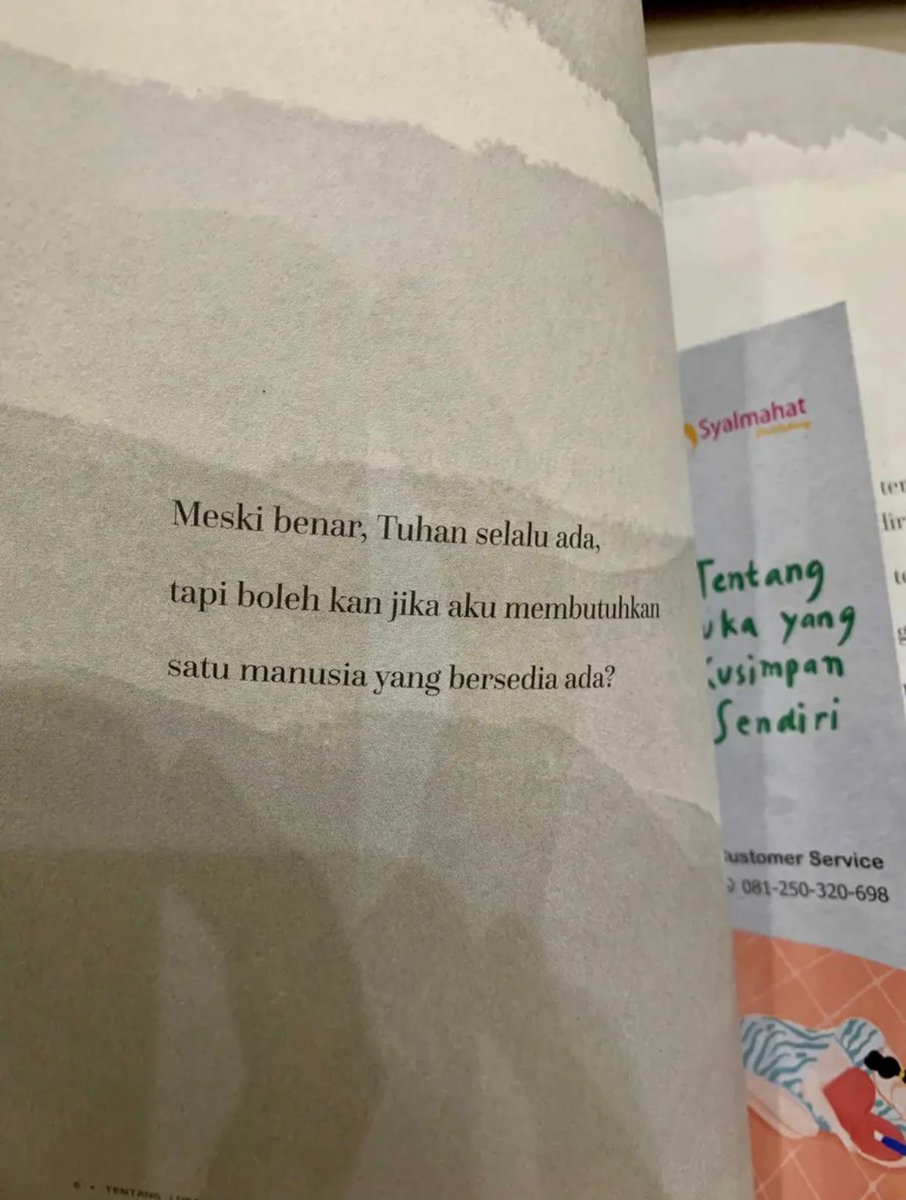 Meski benar, Tuhan selalu ada,
tapi boleh kan jika aku membutuhkan
satu manusia yang bersedia ada?
6 • TENTANG
Syalmahat
Publishing
Tentang
uka yang
Kusimpan
Sendiri
Customer Service
081-250-320-698